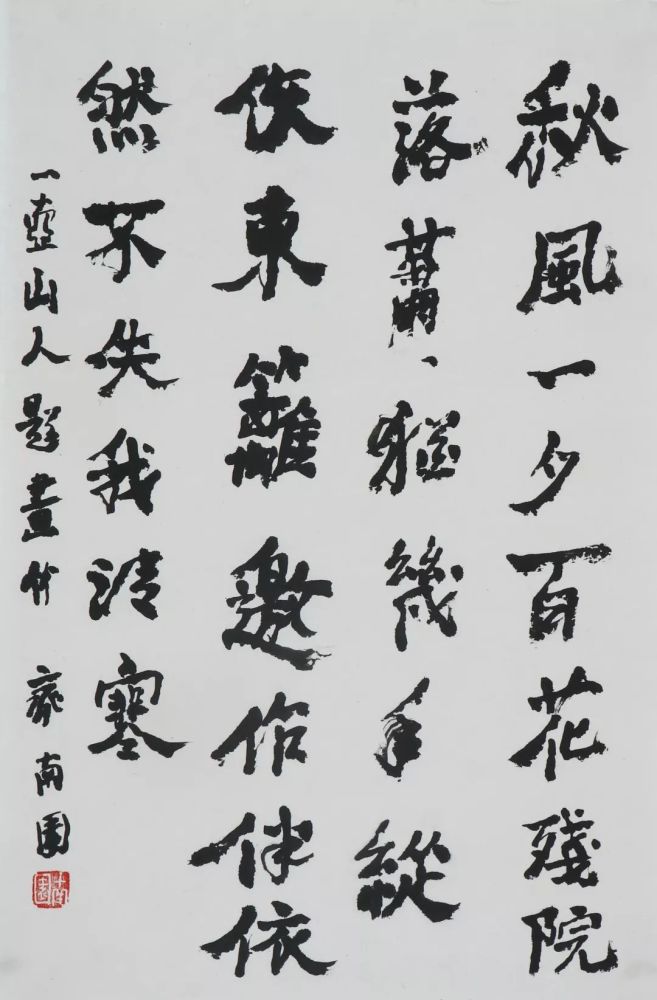 秋風一夕百花殘院
落蕭、猶幾縱
使東籬邀作伴依
然不失我清寒
一壺山人題畫竹 南園